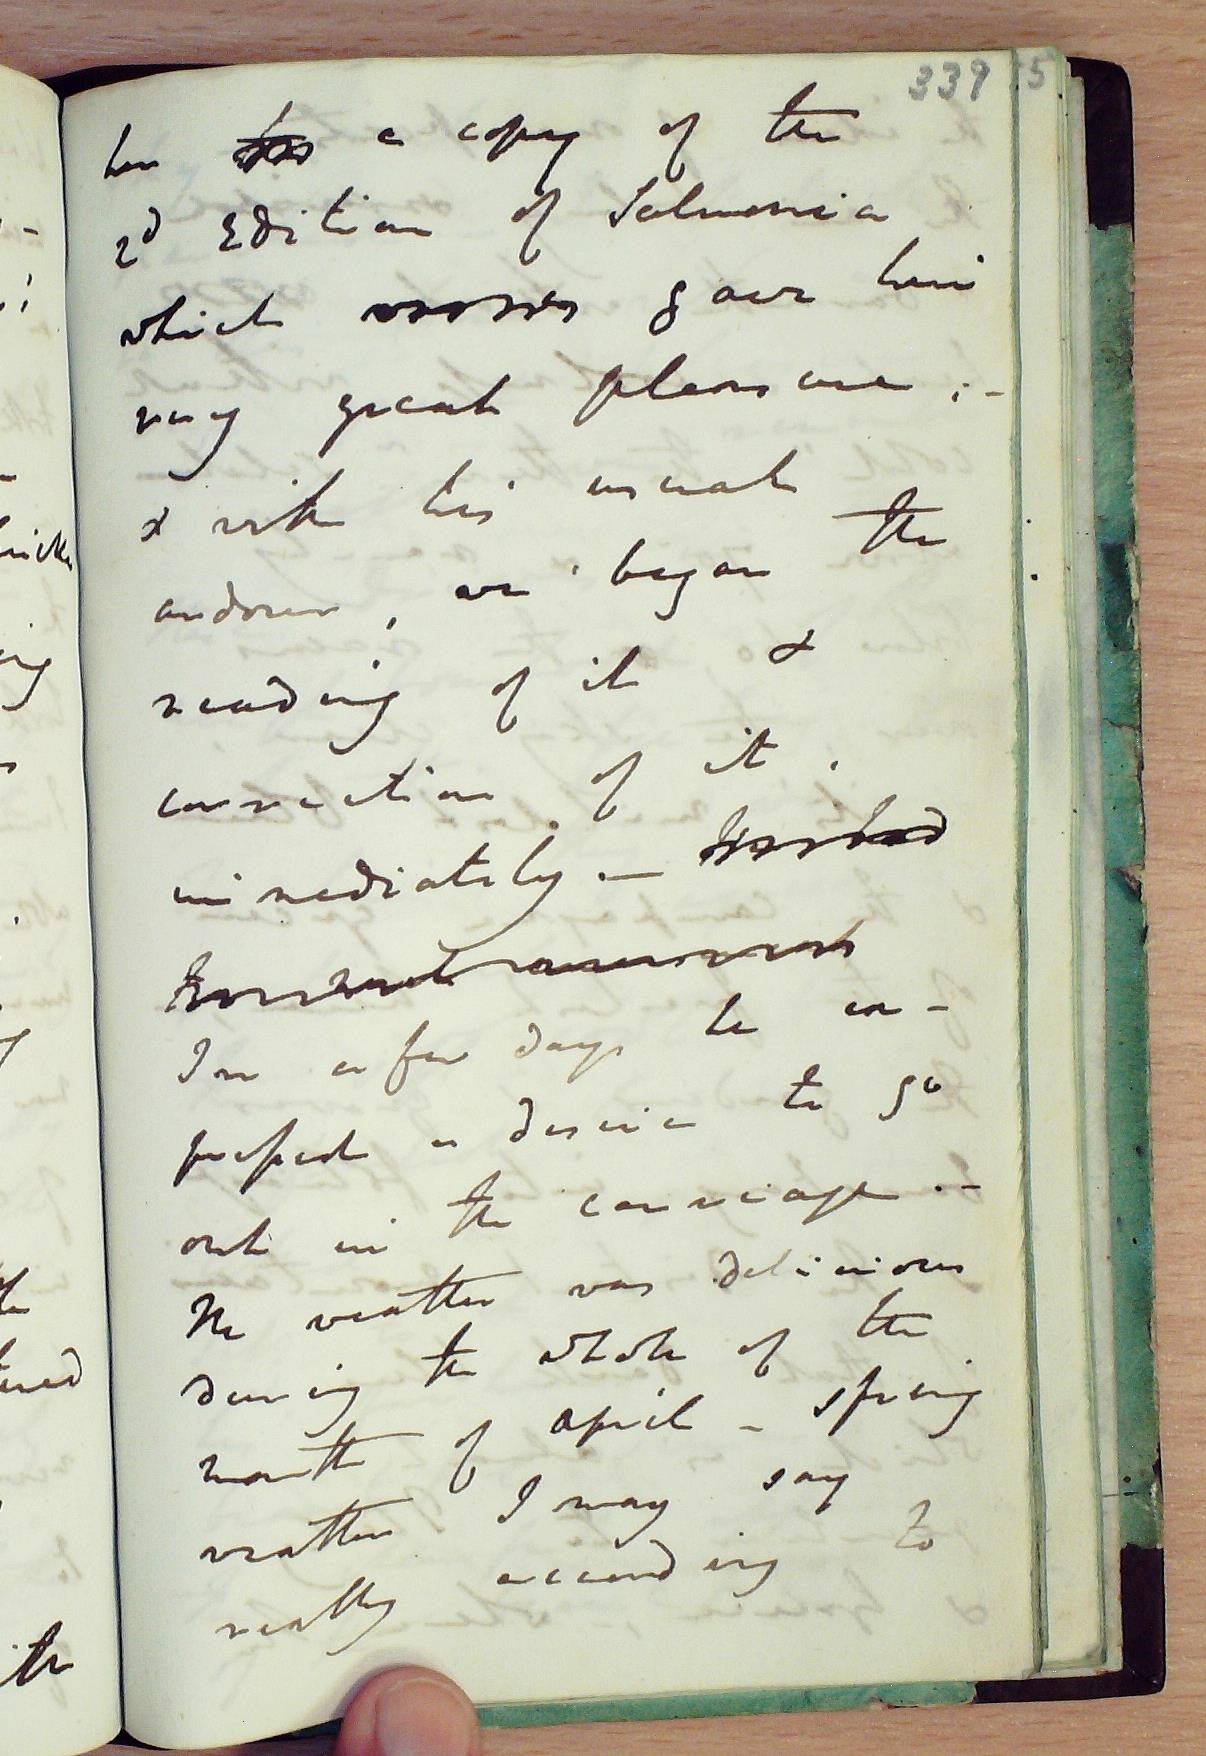 339
her a copy of the
2d Edition of Salmonia
which gave him
very great pleasure ; -
& with his usual
ardour, we began the
reading of it &
correction of it,
immediately. —
In a few days he ex-
pressed a desire to go
out in the carriage. -
The weather was delicious
during the whole of the
month of April - spring
weather I may say
really according to